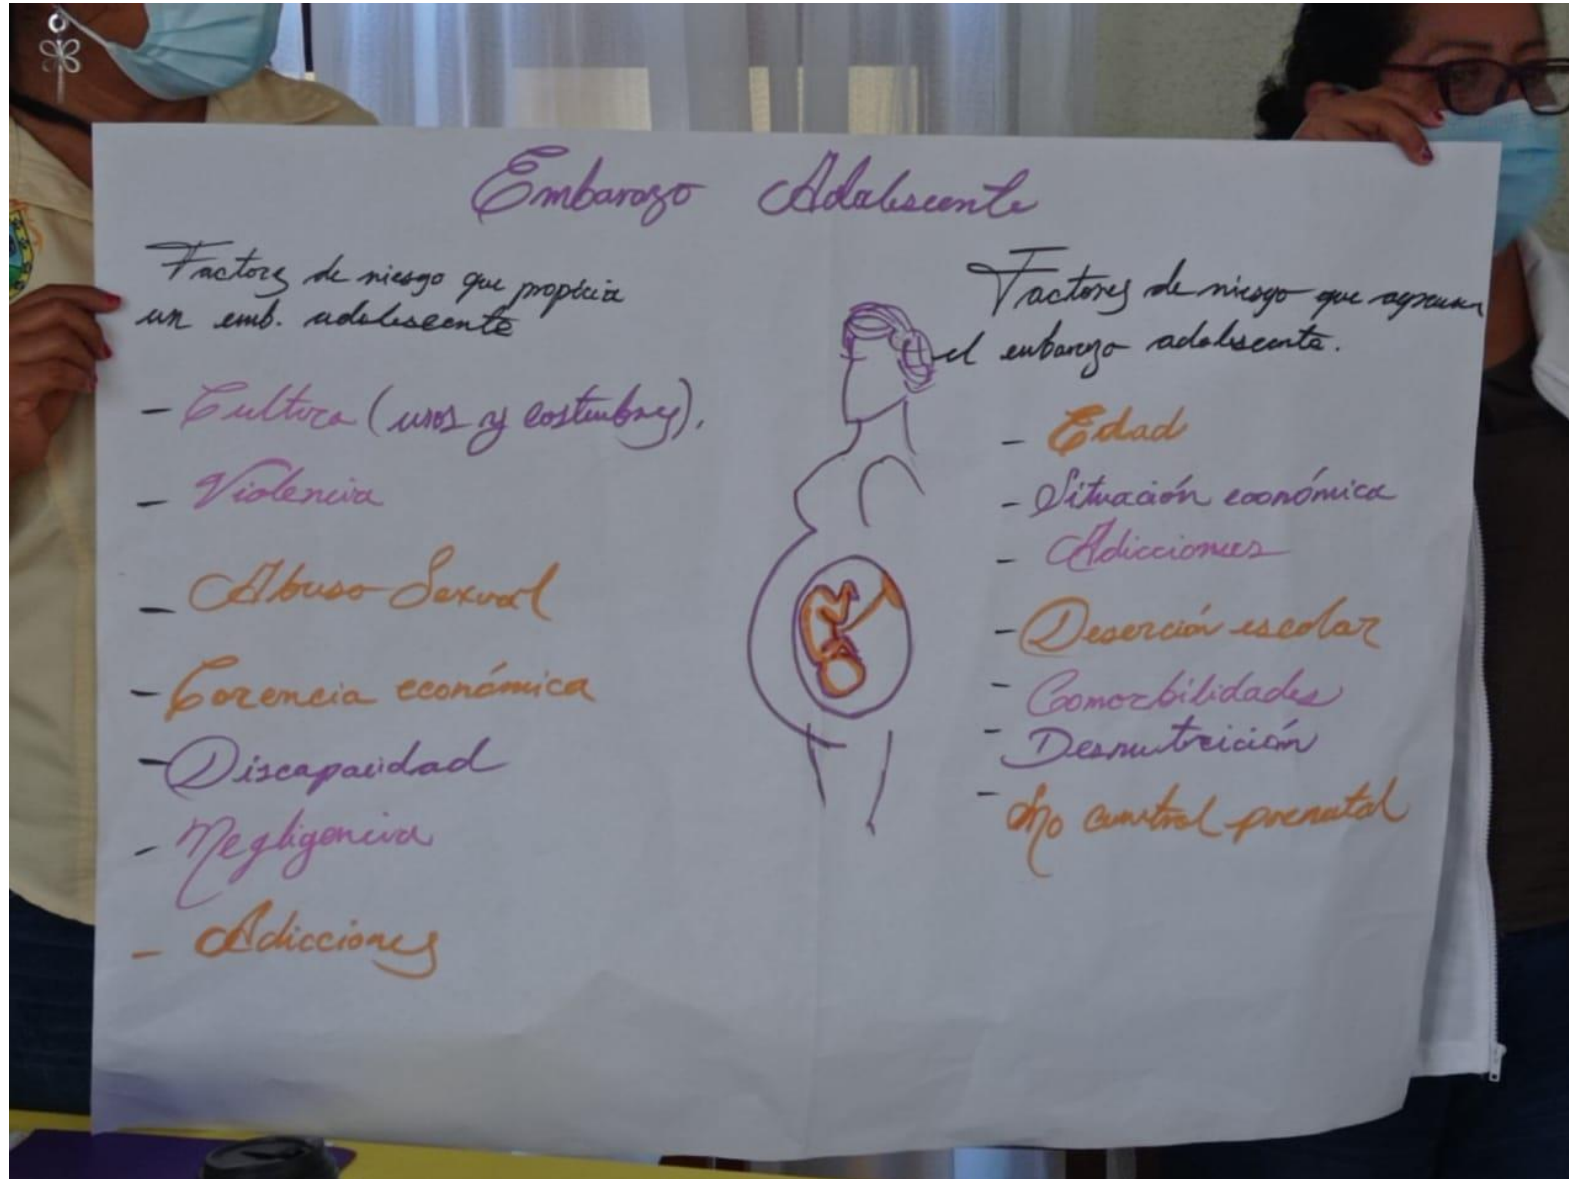 Embarazo Adolescente
Factores de riesgo que propicia
un emb. adolescente
- Cultura (usos y costumbres).
- Violencia
- Abuso Sexual
- Carencia económica
- Discapacidad
- Negligencia
- Adicciones
Factores de riesgo que agravan
el embarazo adolescente.
- Edad
- Situación económica
- Adicciones
- Deserción escolar
- Comorbilidades
- Desnutrición
- No control prenatal